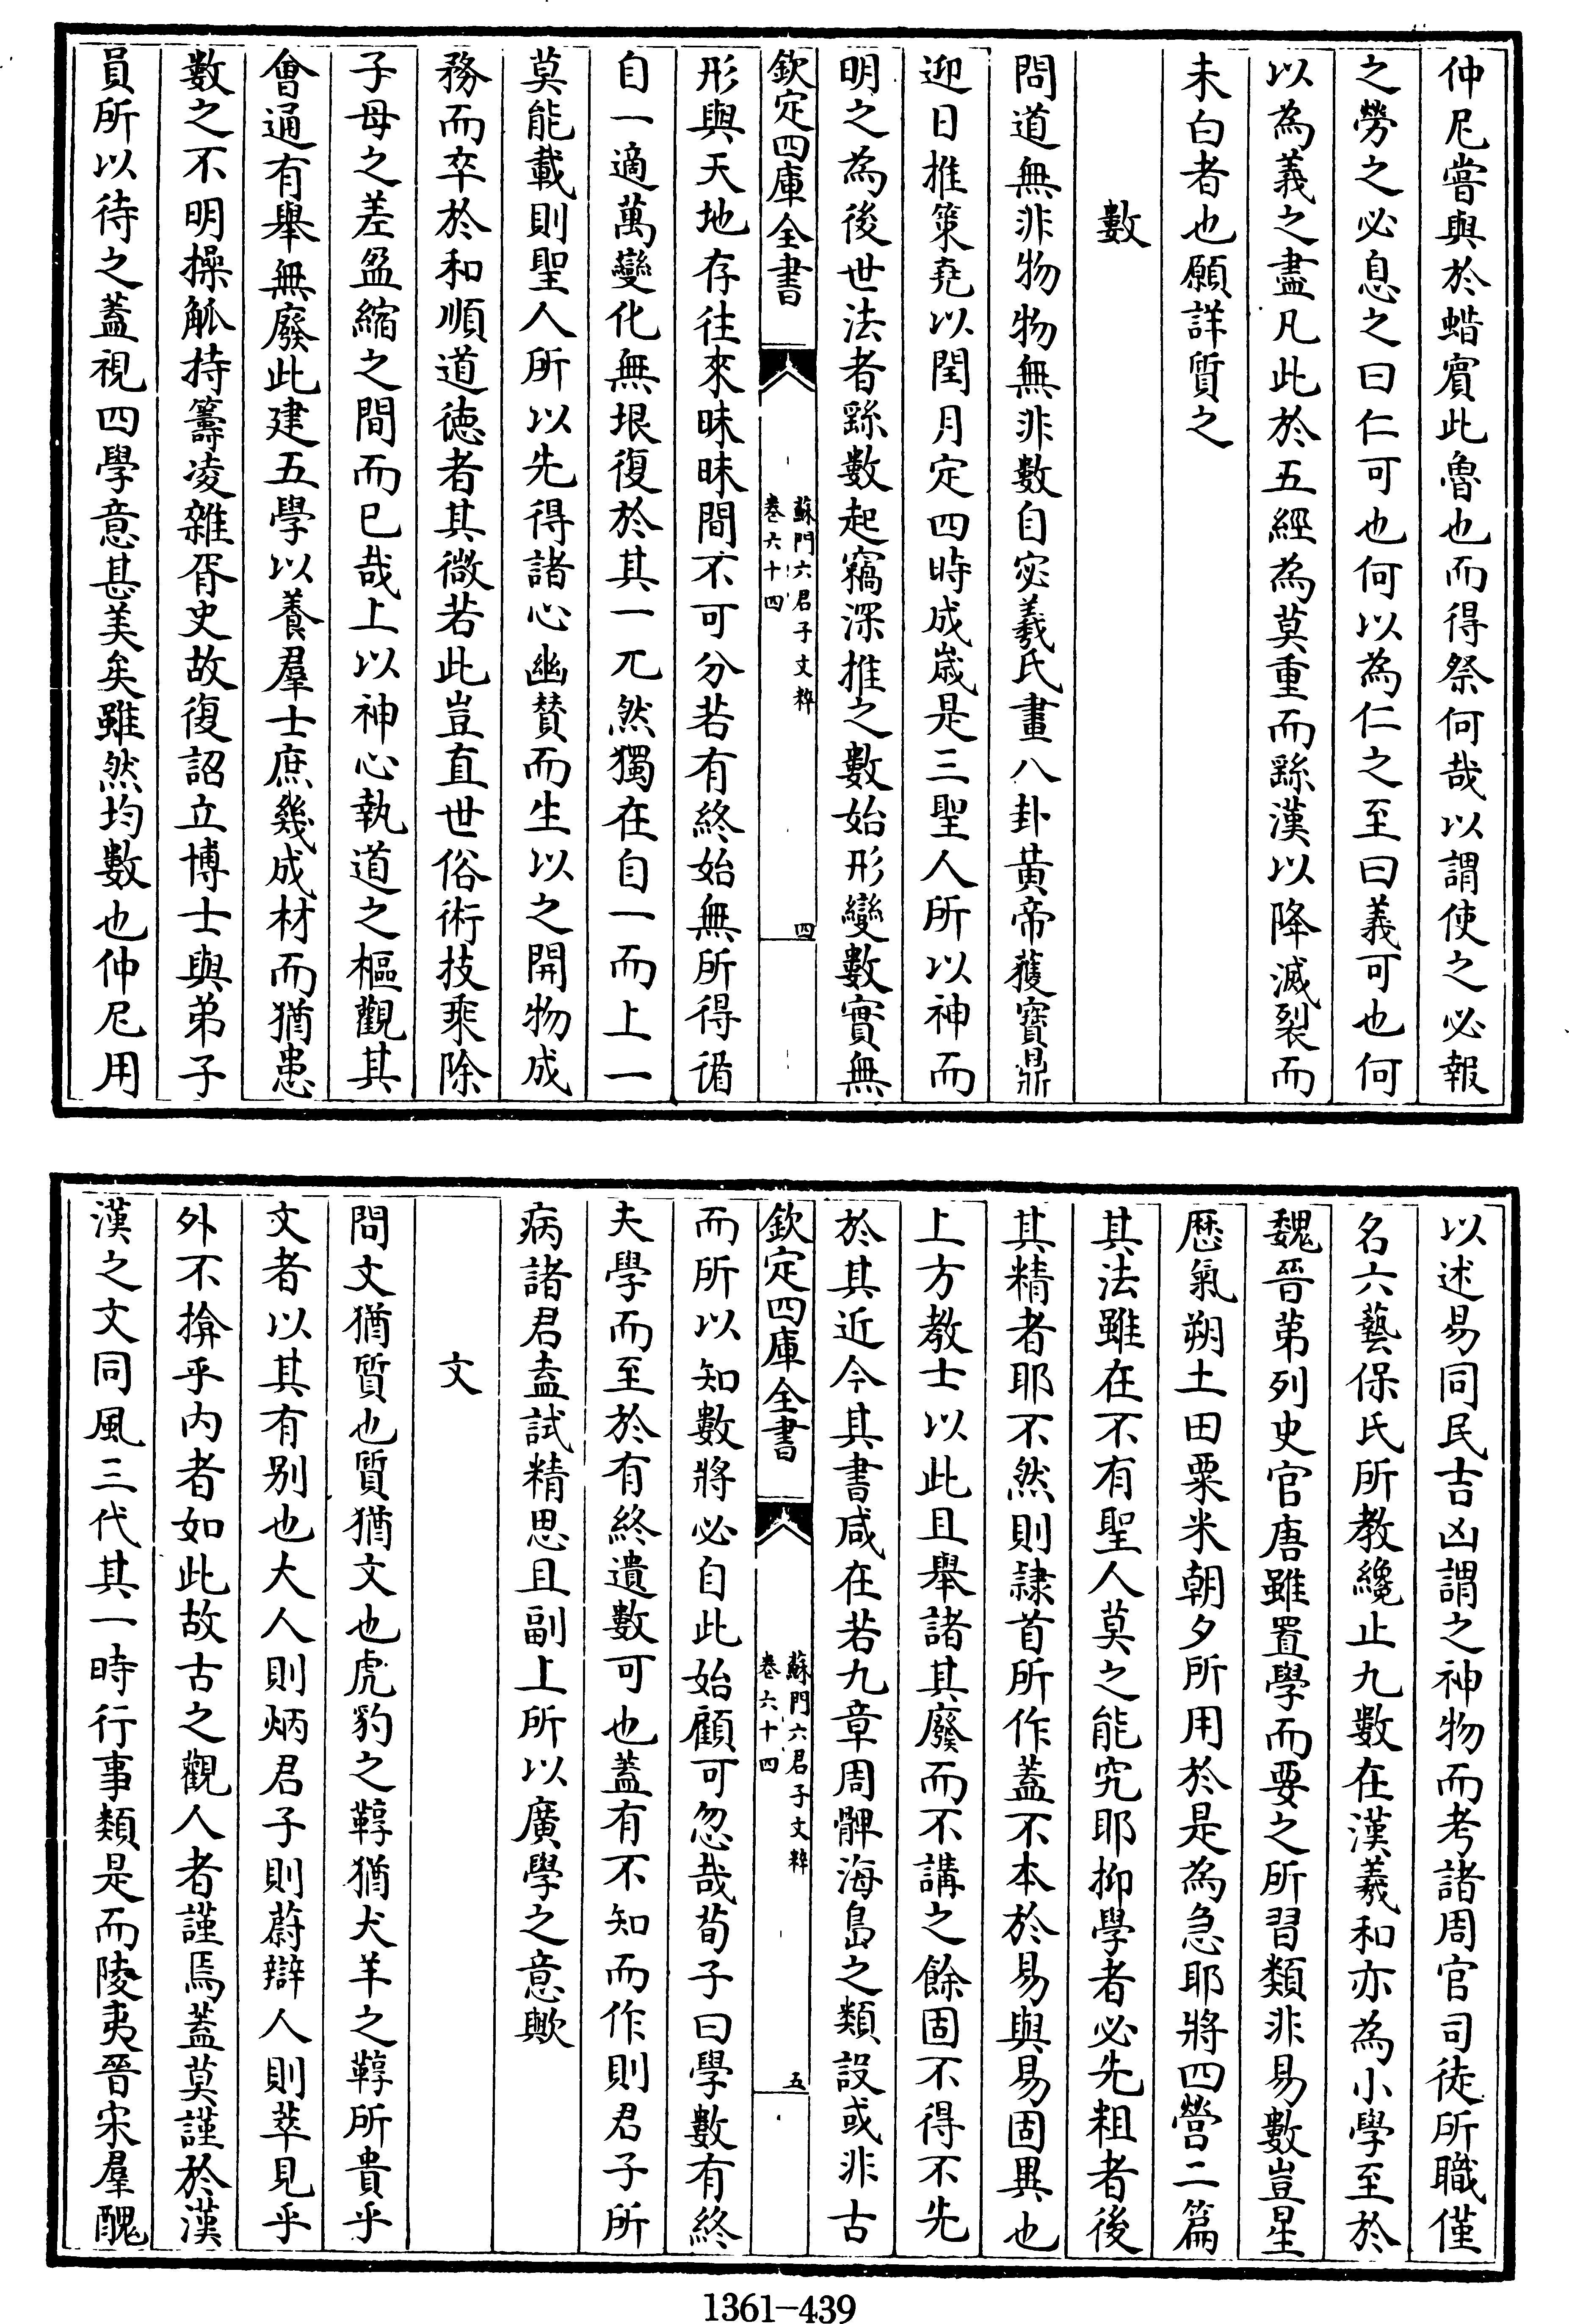 仲尼嘗與於蜡賓此魯也而得祭何哉以謂使之必報
之勞之必息之曰仁可也何以為仁之至曰義可也何
以為義之盡凡此於五經為莫重而繇漢以降滅裂而
未白者也願詳質之
數
問道無非物物無非數自宓羲氏畫八卦黃帝獲寳鼎
迎日推策堯以閏月定四時成嵗是三聖人所以神而
明之為後世法者繇數起竊深推之數始形變數實無
欽定四庫全書
蘇門六君子文粹
卷六十四
四
形與天地存往來昧昧間不可分若有終始無所得循
自一適萬變化無垠復於其一兀然獨在自一而上一
莫能載則聖人所以先得諸心幽賛而生以之開物成
務而卒於和順道徳者其微若此豈直世俗術技乘除
子母之差盈縮之間而已哉上以神心執道之樞觀其
會通有舉無廢此建五學以養羣士庶幾成材而猶患
數之不明操觚持籌凌雜胥史故復詔立博士與弟子
員所以待之蓋視四學意甚美矣雖然均數也仲尼用
以述易同民吉凶謂之神物而考諸周官司徒所職僅
名六藝保氏所教纔止九數在漢羲和亦為小學至於
魏晉第列史官唐雖置學而要之所習類非易數豈星
歴氣朔土田粟米朝夕所用於是為急耶將四營二篇
其法雖在不有聖人莫之能究耶抑學者必先粗者後
其精者耶不然則隷首所作蓋不本於易與易固異也
上方教士以此且舉諸其廢而不講之餘固不得不先
於其近今其書咸在若九章周髀海島之類設或非古
欽定四庫全書
蘇門六君子文粹
卷六十四
五
而所以知數將必自此始顧可忽哉荀子曰學數有終
夫學而至於有終遺數可也蓋有不知而作則君子所
病諸君盍試精思且副上所以廣學之意歟
文
問文猶質也質猶文也虎豹之鞟猶犬羊之鞟所貴乎
文者以其有别也大人則炳君子則蔚辯人則萃見乎
外不揜乎内者如此故古之觀人者謹焉蓋莫謹於漢
漢之文同風三代其一時行事類是而陵夷晉宋羣醜
1361-439